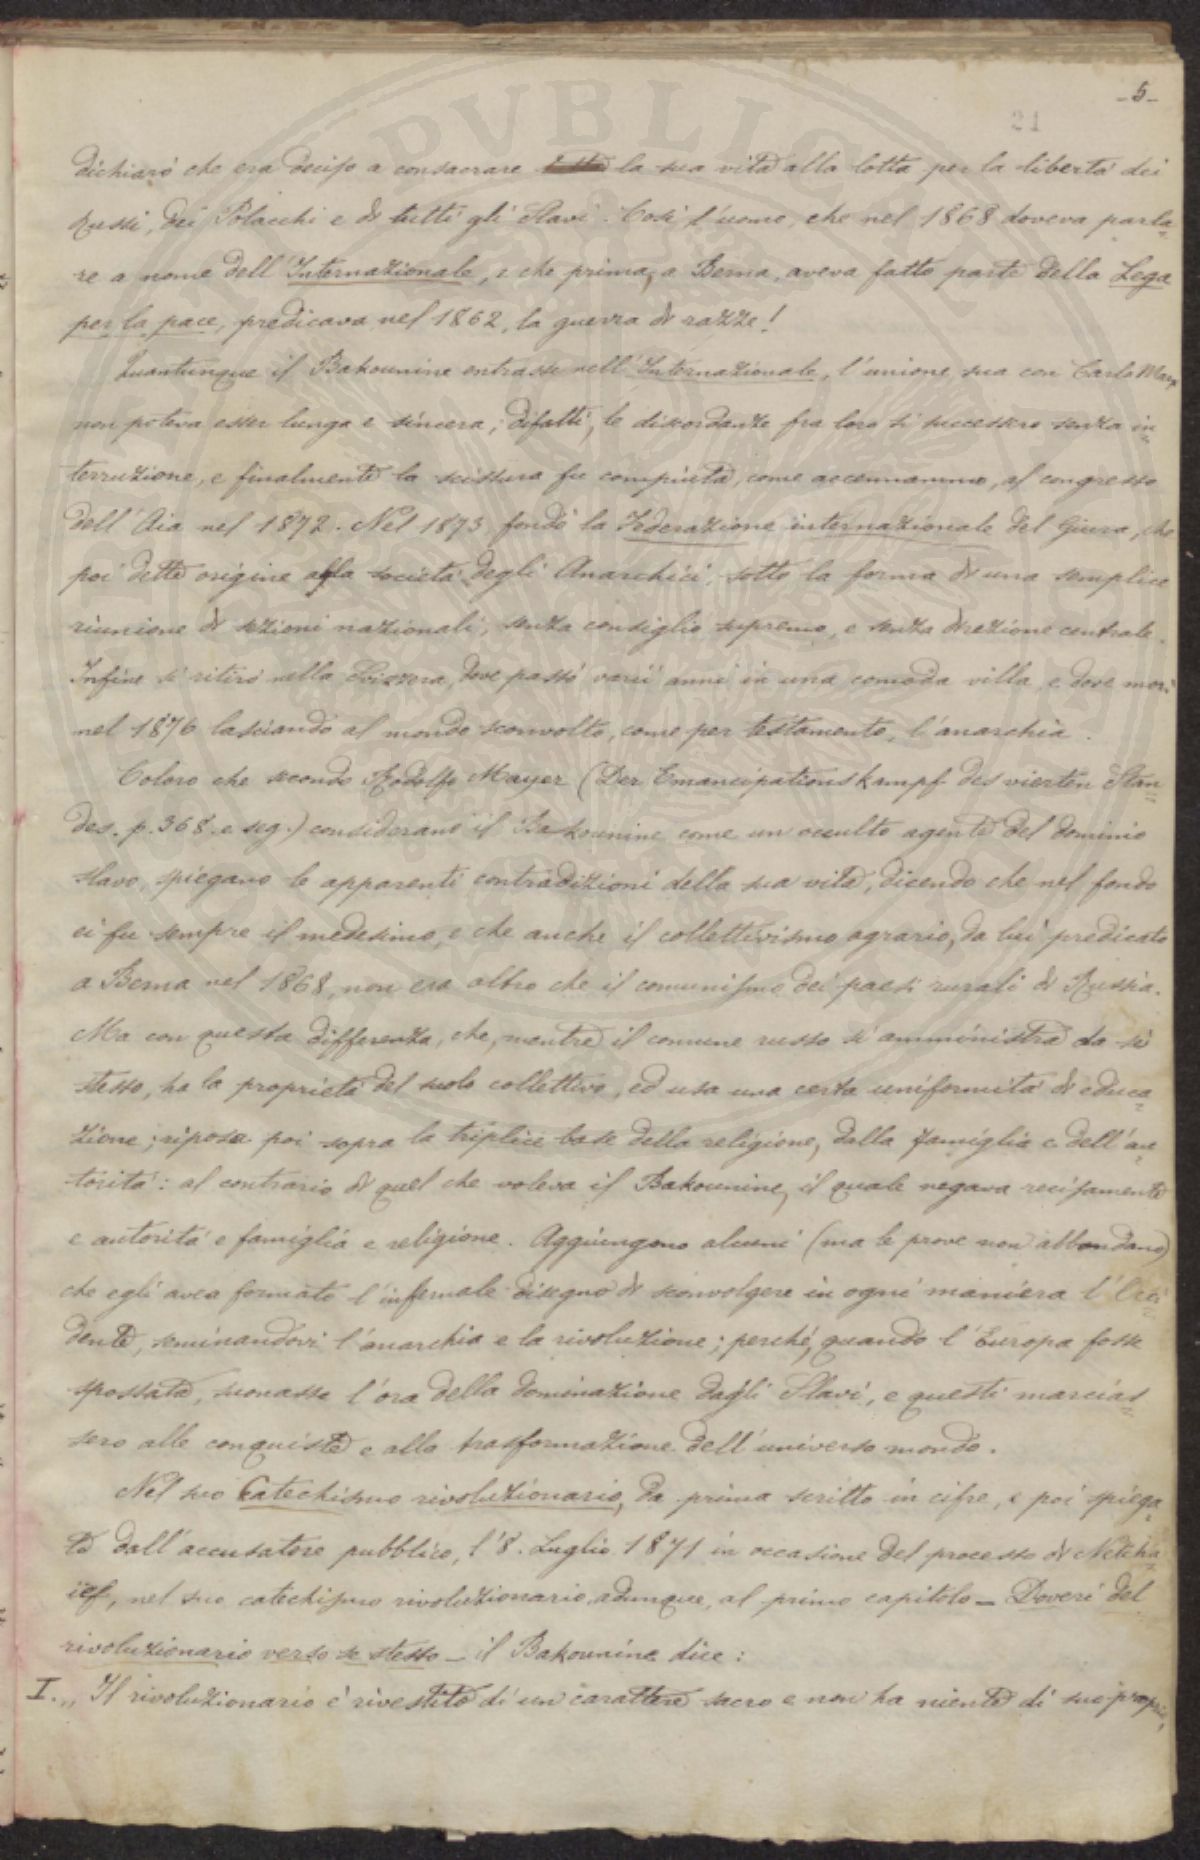 -5-
21
dichiarò che era deciso a consacrare la sua vita alla lotta per la libertà dei
Russi, dei Polacchi e di tutti gli Slavi. Così l'uomo, che nel 1868 doveva parla-
re a nome dell'Internazionale, e che prima, a Berna, aveva fatto parte della Lega
per la pace, predicava nel 1862, la guerra di razze!
Quantunque il Bakounine entrasse nell'Internazionale, l'unione sua con Carlo Marx
non poteva esser lunga e sincera; difatti, le discordanze fra loro si successero senza in-
terruzione, e finalmente la scissura fu compiuta, come accennammo, al congresso
dell'Aia nel 1872. Nel 1873 fondò la Federazione internazionale del Giura, che
poi dette origine alla società degli Anarchici, sotto la forma di una semplice
riunione di sezioni nazionali, senza consiglio supremo, e senza direzione centrale.
Infine si ritirò nella Svizzera, dove passò varii anni in una comoda villa, e dove morì
nel 1876 lasciando al mondo sconvolto, come per testamento, l'anarchia.
Coloro che secondo Rodolfo Mayer (Der Emancipationskampf des vierten Stan-
des. p. 368. e seg.) considerano il Bakounine come un occulto agente del dominio
slavo, spiegano le apparenti contradizioni della sua vita, dicendo che nel fondo
ei fu sempre il medesimo, e che anche il collettivismo agrario, da lui predicato
a Berna nel 1868, non era altro che il comunismo dei paesi rurali di Russia.
Ma con questa differenza, che, mentre il comune russo si amministra da sè
stesso, ha la proprietà del suolo collettivo, ed usa una certa uniformità di educa-
zione; riposa poi sopra la triplice base della religione, dalla famiglia e dell'au-
torità: al contrario di quel che voleva il Bakounine, il quale negava recisamente
e autorità e famiglia e religione. Aggiungono alcuni (ma le prove non abbondano)
che egli avea formato l'infernale disegno di sconvolgere in ogni maniera l'Occi-
dente, seminandovi l'anarchia e la rivoluzione; perché, quando l'Europa fosse
spossata, suonasse l'ora della dominazione dagli Slavi, e questi marcias-
sero alle conquiste e alla trasformazione dell'universo mondo.
Nel suo Catechismo rivoluzionario, da prima scritto in cifre, e poi spiega-
to dall'accusatore pubblico, l'8. Luglio 1871 in occasione del processo di Netcha-
ïef, nel suo catechismo rivoluzionario adunque, al primo capitolo — Doveri del
rivoluzionario verso se stesso — il Bakounine dice:
I. „ Il rivoluzionario è rivestito di un carattere sacro e non ha niente di suo proprio,